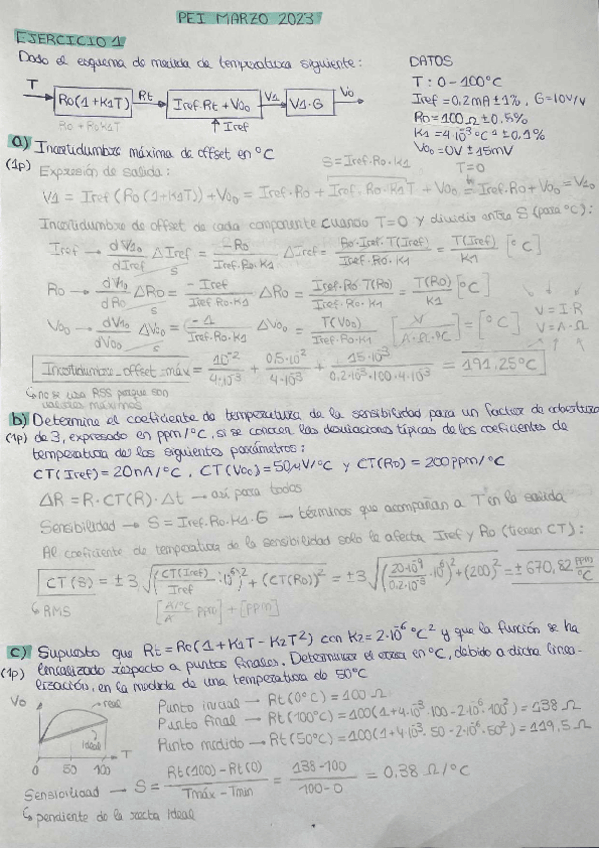 PEI MARZO 2023
EJERCICIO 1
Dado el esquema de medida de temperatura siguiente:
DATOS
T: 0-100ºC
Iref = 0,2mA ± 1%, G=10V/V
R0=100Ω ± 0,5%
K1=4·10⁻³ ºC⁻¹ ± 0,1%
V00=0V ± 15mV
T → R0(1+K1T) → Rt → Iref·Rt + V00 → V1 → V1·G → V0
R0 + R0K1T
↑ Iref
a) Incertidumbre máxima de offset en ºC
(1p) Expresión de salida:
S=Iref·R0·K1
T=0
V1 = Iref (R0(1+K1T)) + V00 = Iref·R0 + Iref·R0·K1T + V00 = Iref·R0 + V00 = V10
Incertidumbre de offset de cada componente cuando T=0 y dividido entre S (para ºC):
Iref → dV10/dIref ΔIref/S = -R0/Iref·R0·K1 ΔIref = R0·Iref·T(Iref)/Iref·R0·K1 = T(Iref)/K1 [ºC]
R0 → dV10/dR0 ΔR0/S = -Iref/Iref·R0·K1 ΔR0 = Iref·R0·T(R0)/Iref·R0·K1 = T(R0)/K1 [ºC]
V00 → dV10/dV00 ΔV00/S = -1/Iref·R0·K1 ΔV00 = T(V00)/Iref·R0·K1 [V/A·Ω·ºC] = [ºC]
V=I·R
V=A·Ω
Incertidumbre_offset_máx = 10⁻²/4·10⁻³ + 0,5·10⁻²/4·10⁻³ + 15·10⁻³/0,2·10⁻³·100·4·10⁻³ = 191,25ºC
↳ no se usa RSS porque son
valores máximos
b) Determine el coeficiente de temperatura de la sensibilidad para un factor de cobertura
(1p) de 3, expresado en ppm/ºC, si se conocen las desviaciones típicas de los coeficientes de
temperatura de los siguientes parámetros:
CT(Iref)=20nA/ºC, CT(V00)=50μV/ºC y CT(R0)=200ppm/ºC
ΔR = R·CT(R)·Δt → así para todos
Sensibilidad → S = Iref·R0·K1·G → términos que acompañan a T en la salida
Al coeficiente de temperatura de la sensibilidad solo le afecta Iref y R0 (tienen CT):
CT(S) = ±3 √((CT(Iref)/Iref ·10⁶)² + (CT(R0))²) = ±3 √((20·10⁻⁹/0,2·10⁻³ ·10⁶)² + (200)²) = ±670,82 ppm/ºC
↳ RMS
[A/ºC/A ppm] + [ppm]
c) Supuesto que Rt=R0(1+K1T-K2T²) con K2=2·10⁻⁶ ºC⁻² y que la función se ha
(1p) linealizado respecto a puntos finales. Determinar el error en ºC, debido a dicha linea-
lización, en la medida de una temperatura de 50ºC
V0
real
Ideal
T
0 50 100
Punto inicial → Rt(0ºC) = 100Ω
Punto final → Rt(100ºC) = 100(1+4·10⁻³·100-2·10⁻⁶·100²) = 138Ω
Punto medido → Rt(50ºC) = 100(1+4·10⁻³·50-2·10⁻⁶·50²) = 119,5Ω
Sensibilidad → S = Rt(100)-Rt(0)/Tmáx-Tmin = 138-100/100-0 = 0,38 Ω/ºC
↳ pendiente de la recta Ideal